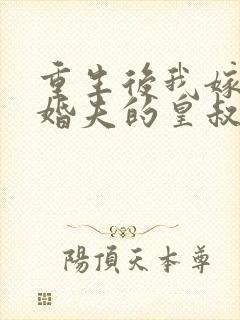 重生後我嫁
婚夫的皇叔
陽頂天本尊